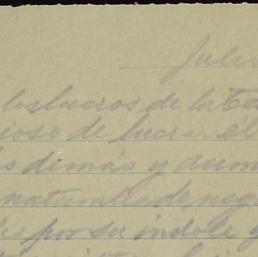 Julio
los lucros de la Ca
ioso de lucrar él
s demás y aum
naturales de neg
les por su índole y